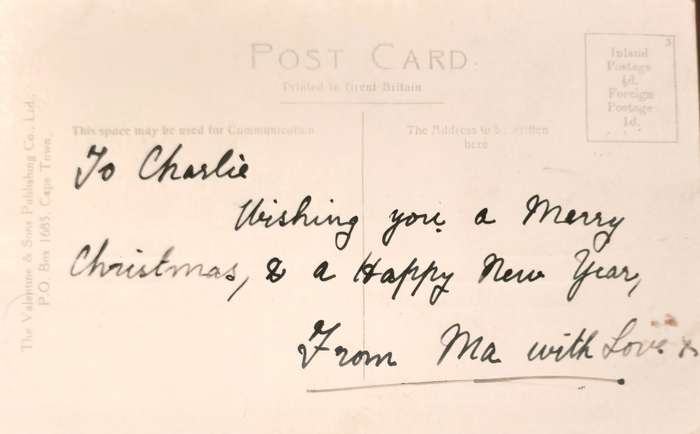 POST CARD.
Printed in Great Britain
Inland
Postage
½d.
Foreign
Postage
1d.
This space may be used for Communication
The Address to be written
here
The Valentine & Sons Publishing Co., Ltd.,
P.O. Box 1685, Cape Town.
To Charlie
Wishing you a Merry
Christmas, & a Happy New Year,
From Ma with Love x